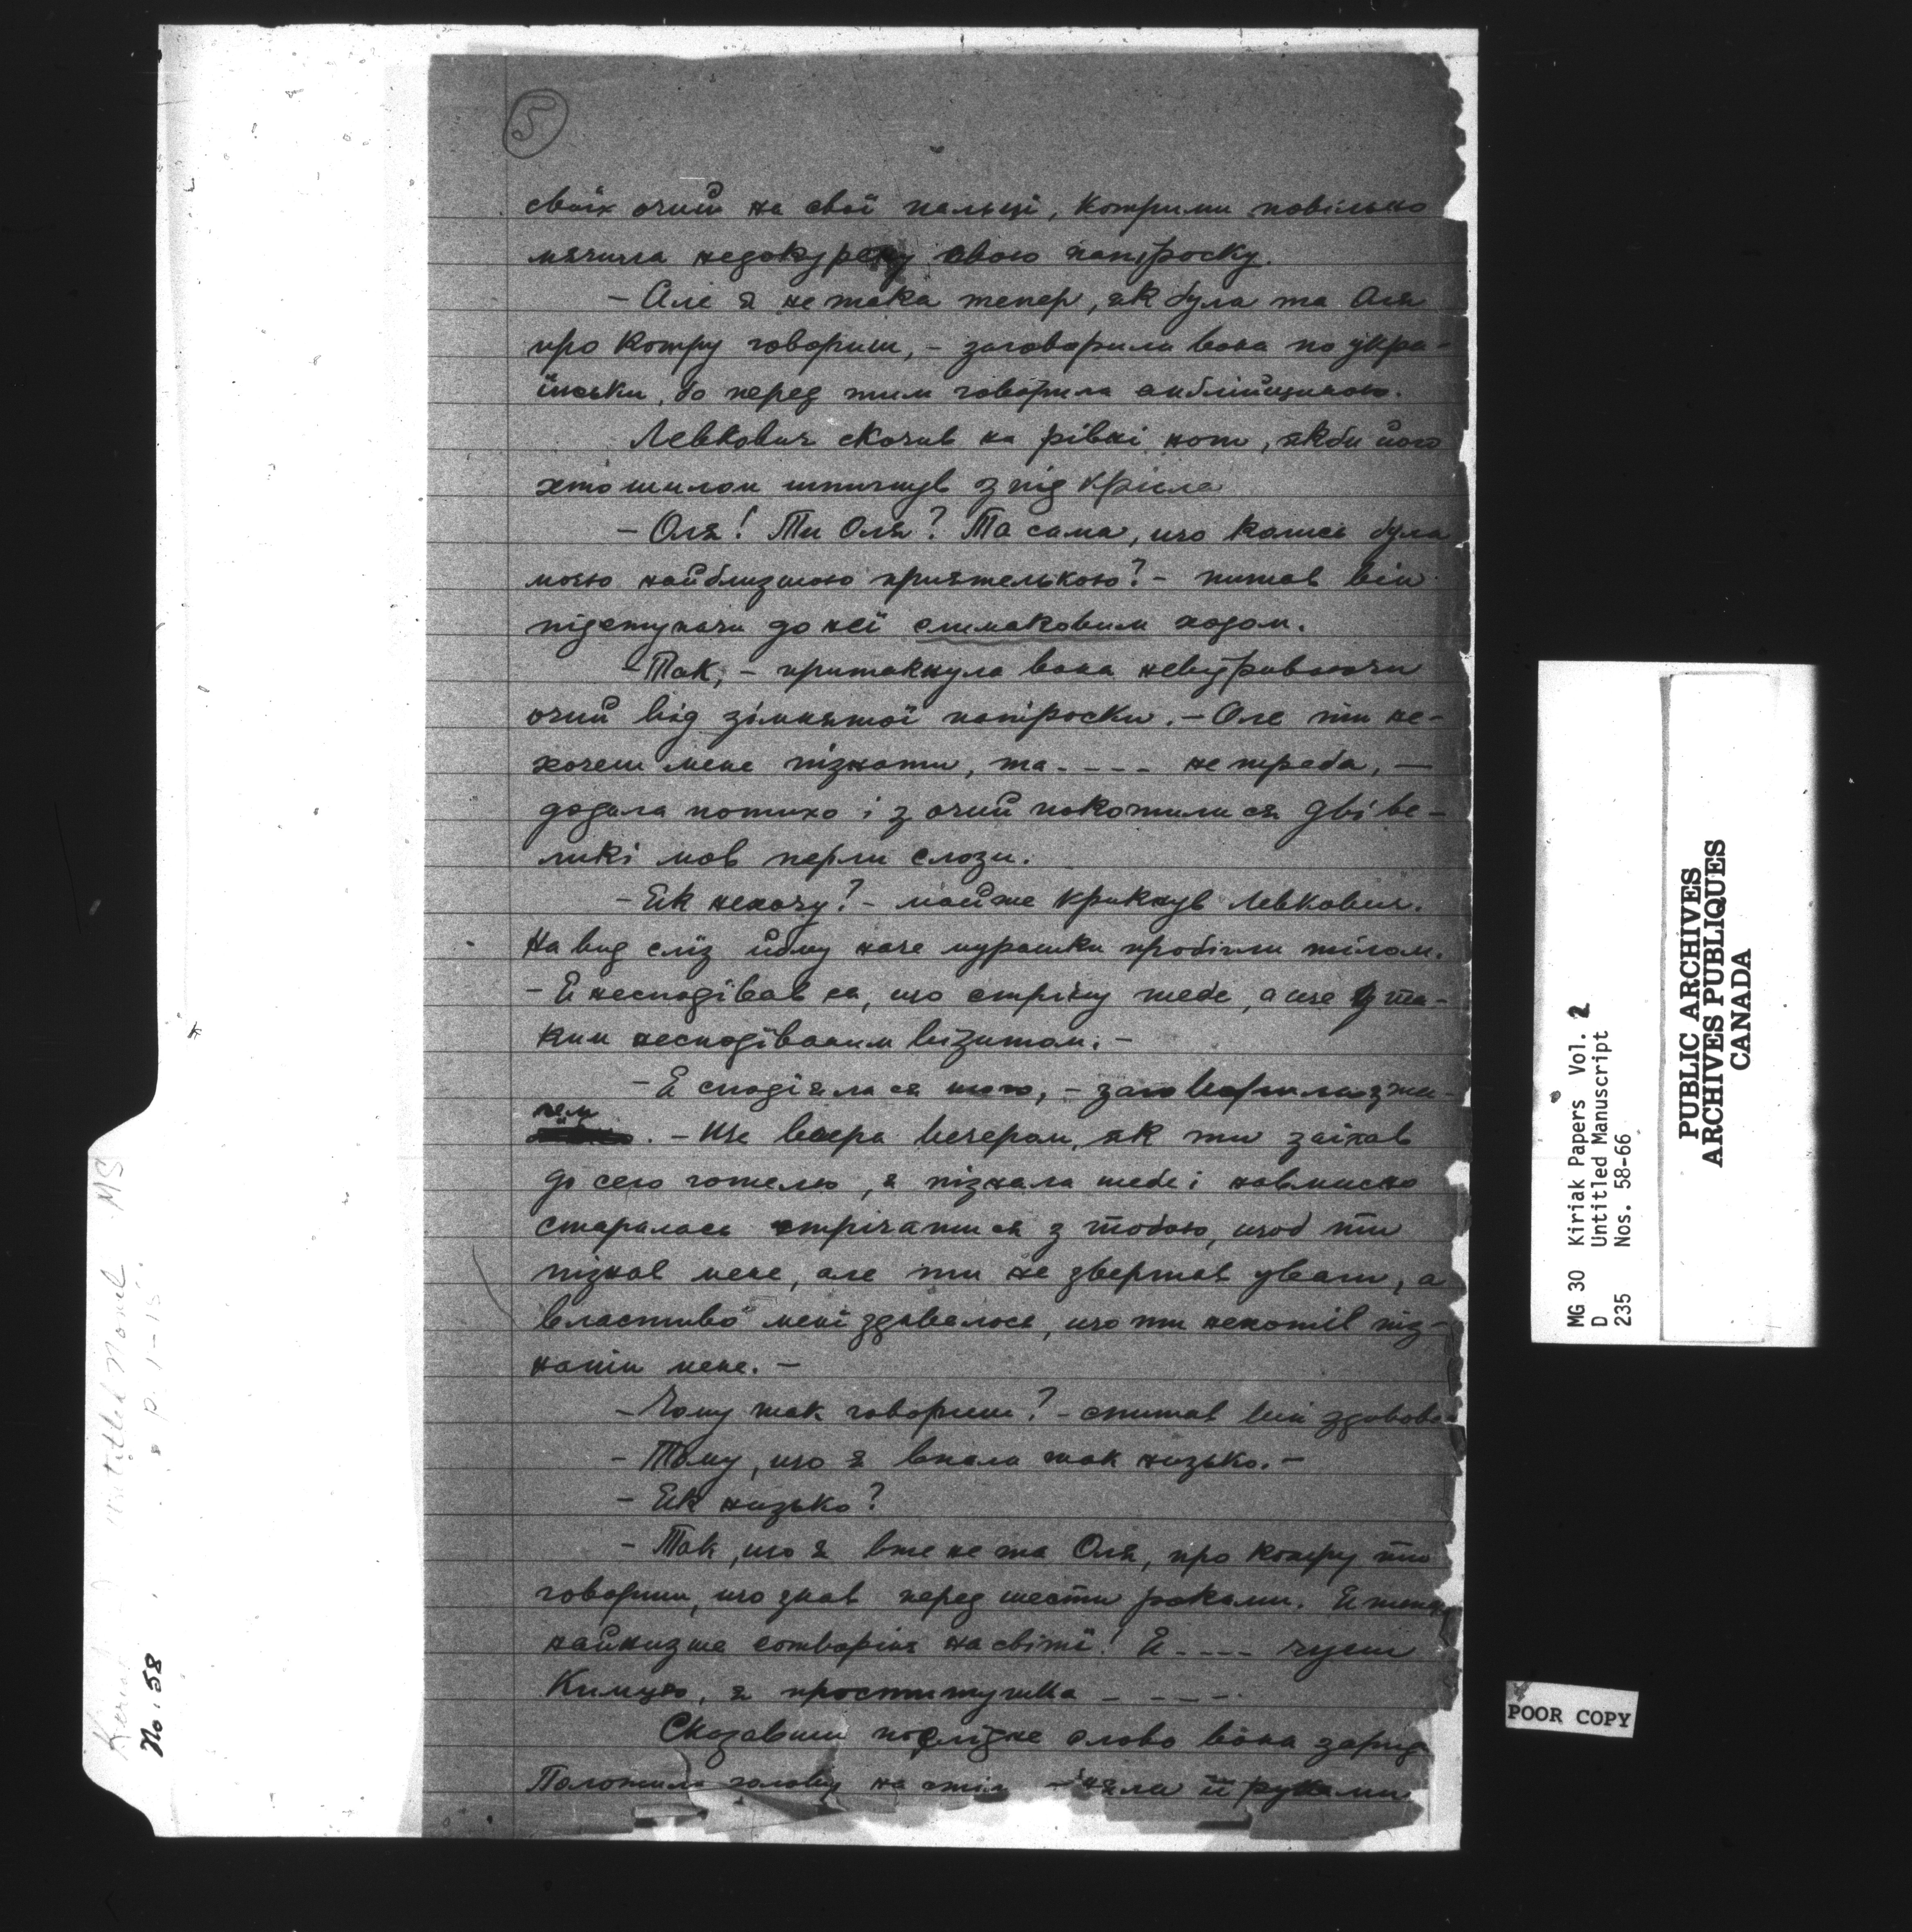 5
своїх очий на свої пальці, котрими повільно
мячила недокурену свою папіроску.
– Але я не така тепер, як була та Оля
про котру говориш, – заговорила вона по укра-
їнськи, бо перед тим говорила англійщиною.
Левкович скочив на рівні ноги, якби його
хто шилом шпигнув з під крісла
– Оля! Ти Оля? Та сама, що колись була
моєю найблизшою приятелькою? – питав він
підступаючи до неї слимаковим ходом.
– Так, – притакнула вона невідриваючи
очий від зімнятої папіроски. – Але ти не-
хочеш мене пізнати, та - - - - не треба, –
додала потихо і з очий покотили ся дві ве-
ликі мов перли слози.
– Як нехочу? – майже крикнув Левкович.
На вид сліз йому наче мурашки пробігли тілом.
– Я несподівав ся, що стріну тебе, а ще з та-
ким несподіваним візитом. –
– Я сподіяла ся того, – заговорила з жи-
лем
. – Ще вчера вечером, як ти заїхав
до сего готелю, я пізнала тебе і навмисно
старалась стрічати ся з тобою, щоб ти
пізнав мене, але ти не звертав уваги, а
властиво мені здавалось, що ти нехотів піз-
нати мене. –
– Чому так говориш? – спитав він
– Тому, що я впала так низько. –
– Як низько?
– Так, що я вже не та Оля, про котру ти
говориш, що знав перед шести роками. Я тепер
найнизше сотворіня на світі! Я - - - - чуєш
я проститутка - - - - -
Сказавши послідне слово вона зарид
Положила голову на стіл її руками
Untitled Novel MS
p. 1-15.
No. 58
MG 30 Kiriak Papers Vol. 2
D Untitled Manuscript
235 Nos. 58-66
PUBLIC ARCHIVES
ARCHIVES PUBLIQUES
CANADA
POOR COPY